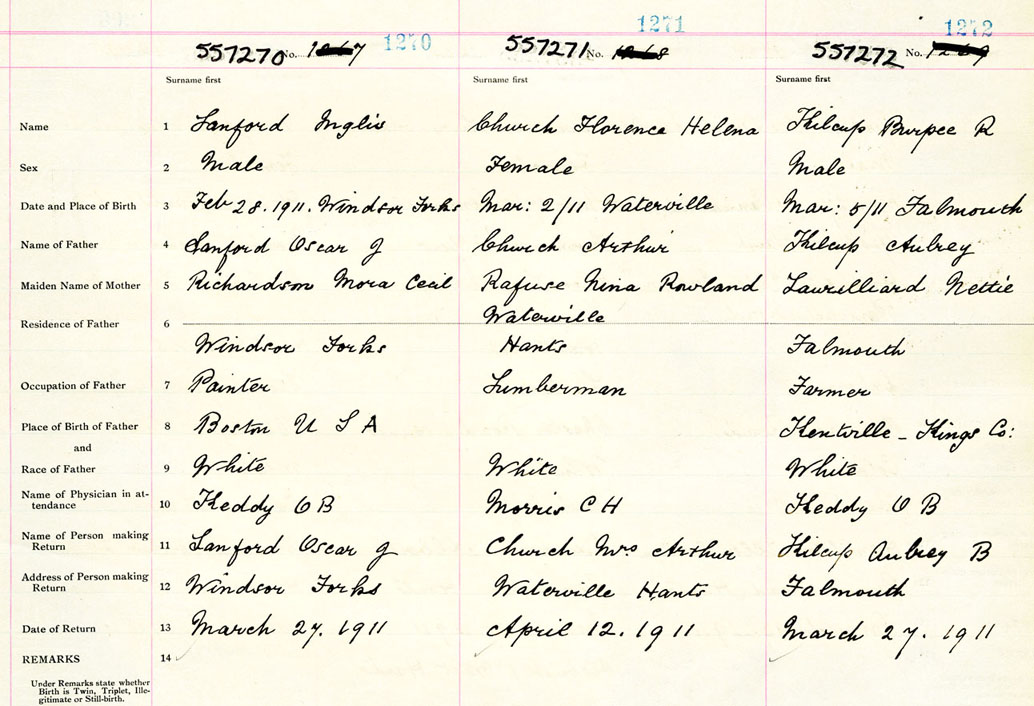 1270 1271 1272
557270 No. 1267 557271 No. 1268 557272 No. 1269
Surname first Surname first Surname first
Name 1 Sanford Inglis Church Florence Helena Kilcup Burpee R
Sex 2 Male Female Male
Date and Place of Birth 3 Feb 28. 1911. Windsor Forks Mar: 2/11 Waterville Mar: 5/11 Falmouth
Name of Father 4 Sanford Oscar J Church Arthur Kilcup Aubrey
Maiden Name of Mother 5 Richardson Mora Cecil Rafuse Nina Rowland Laurilliard Nettie
Waterville
Residence of Father 6
Windsor Forks Hants Falmouth
Occupation of Father 7 Painter Lumberman Farmer
Place of Birth of Father 8 Boston U S A Kentville - Kings Co:
and
Race of Father 9 White White White
Name of Physician in at-
tendance 10 Keddy O B Morris C H Keddy O B
Name of Person making
Return 11 Sanford Oscar J Church Mrs Arthur Kilcup Aubrey B
Address of Person making
Return 12 Windsor Forks Waterville Hants Falmouth
Date of Return 13 March 27. 1911 April 12. 1911 March 27. 1911
REMARKS 14
Under Remarks state whether
Birth is Twin, Triplet, Ille-
gitimate or Still-birth.